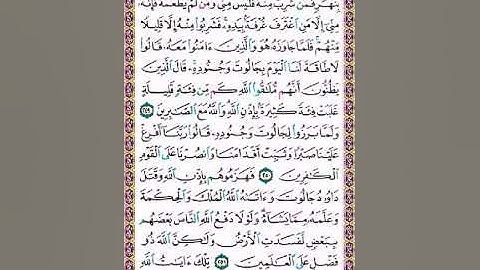 بِنَهَرٍ فَمَن شَرِبَ مِنْهُ فَلَيْسَ مِنِّي وَمَن لَّمْ يَطْعَمْهُ فَإِنَّهُۥ
مِنِّيٓ إِلَّا مَنِ ٱغْتَرَفَ غُرْفَةَۢ بِيَدِهِۦۚ فَشَرِبُوا۟ مِنْهُ إِلَّا قَلِيلًا
مِّنْهُمْۚ فَلَمَّا جَاوَزَهُۥ هُوَ وَٱلَّذِينَ ءَامَنُوا۟ مَعَهُۥ قَالُوا۟
لَا طَاقَةَ لَنَا ٱلْيَوْمَ بِجَالُوتَ وَجُنُودِهِۦۚ قَالَ ٱلَّذِينَ
يَظُنُّونَ أَنَّهُم مُّلَٰقُوا۟ ٱللَّهِ كَم مِّن فِئَةٍ قَلِيلَةٍ
غَلَبَتْ فِئَةً كَثِيرَةَۢ بِإِذْنِ ٱللَّهِۗ وَٱللَّهُ مَعَ ٱلصَّٰبِرِينَ ٢٤٩
وَلَمَّا بَرَزُوا۟ لِجَالُوتَ وَجُنُودِهِۦ قَالُوا۟ رَبَّنَآ أَفْرِغْ
عَلَيْنَا صَبْرًا وَثَبِّتْ أَقْدَامَنَا وَٱنصُرْنَا عَلَى ٱلْقَوْمِ
ٱلْكَٰفِرِينَ ٢٥٠ فَهَزَمُوهُم بِإِذْنِ ٱللَّهِ وَقَتَلَ
دَاوُۥدُ جَالُوتَ وَءَاتَىٰهُ ٱللَّهُ ٱلْمُلْكَ وَٱلْحِكْمَةَ
وَعَلَّمَهُۥ مِمَّا يَشَآءُۗ وَلَوْلَا دَفْعُ ٱللَّهِ ٱلنَّاسَ بَعْضَهُم
بِبَعْضٍ لَّفَسَدَتِ ٱلْأَرْضُ وَلَٰكِنَّ ٱللَّهَ ذُو
فَضْلٍ عَلَى ٱلْعَٰلَمِينَ ٢٥١ تِلْكَ ءَايَٰتُ ٱللَّهِ